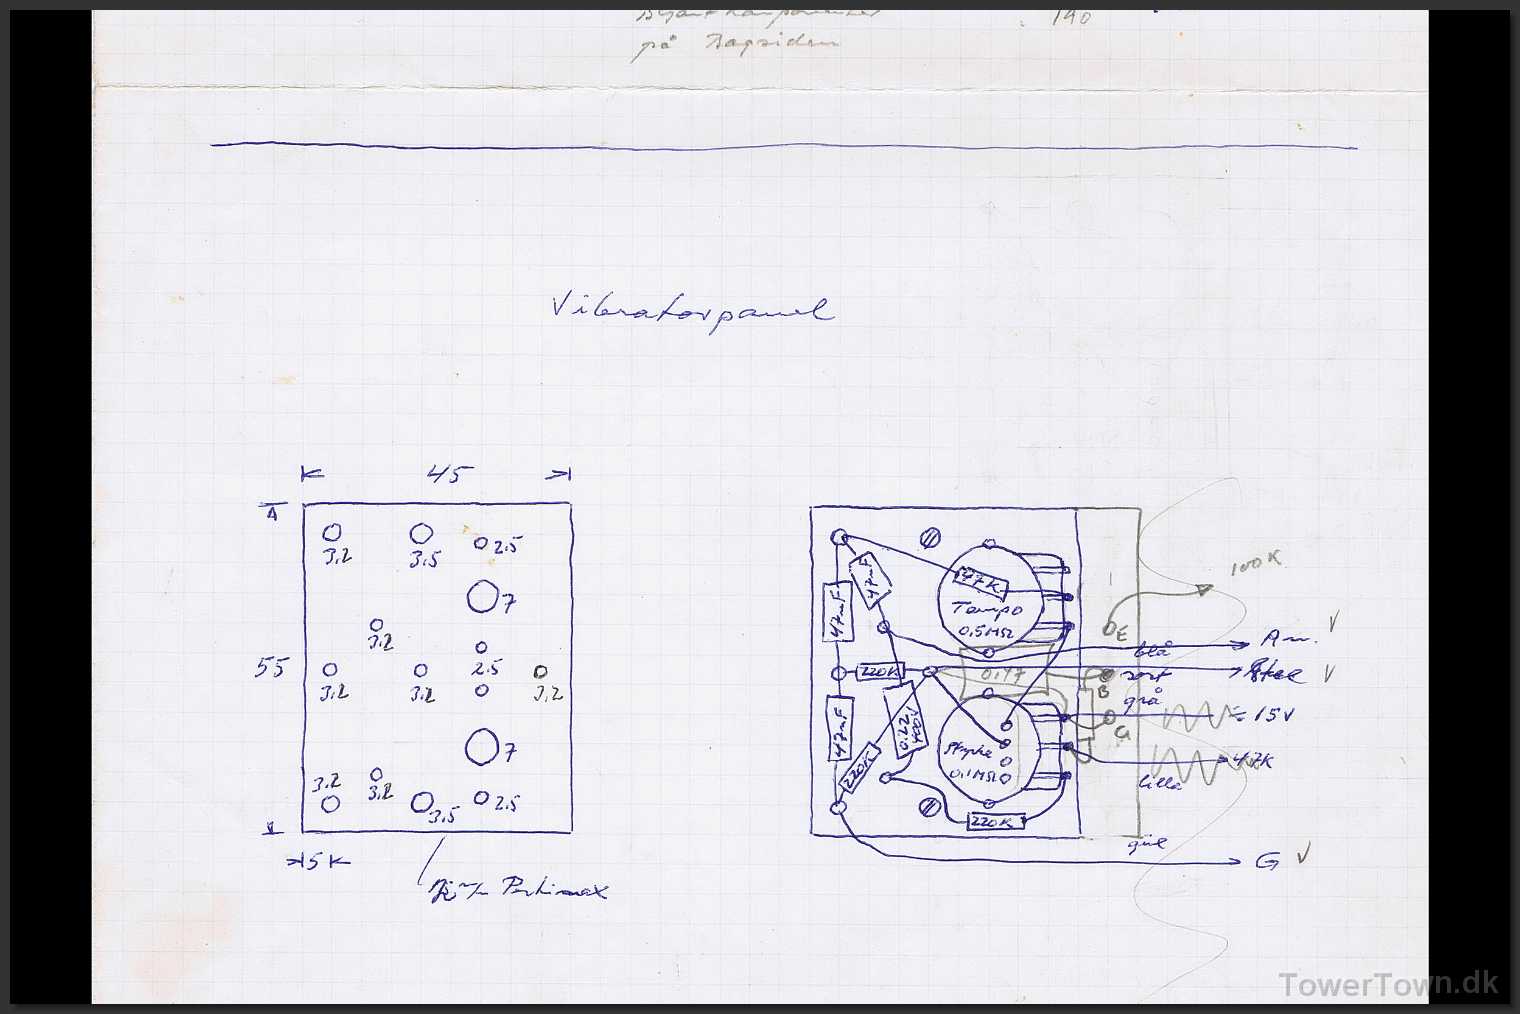 på Bagsiden
190
Vibratorpanel
45
3.2
3.5
2.5
7
3.2
55
2.5
3.2
3.2
3.2
7
3.2
3.2
3.5
2.5
5
Pertinax
47nF
47nF
47K
Tempo
0.5MΩ
100K
E
blå
Am.
220K
0.47
sort
B
grå
15V
47nF
0.22
400V
Styrke
0.1MΩ
220K
47K
lilla
220K
gul
G
TowerTown.dk